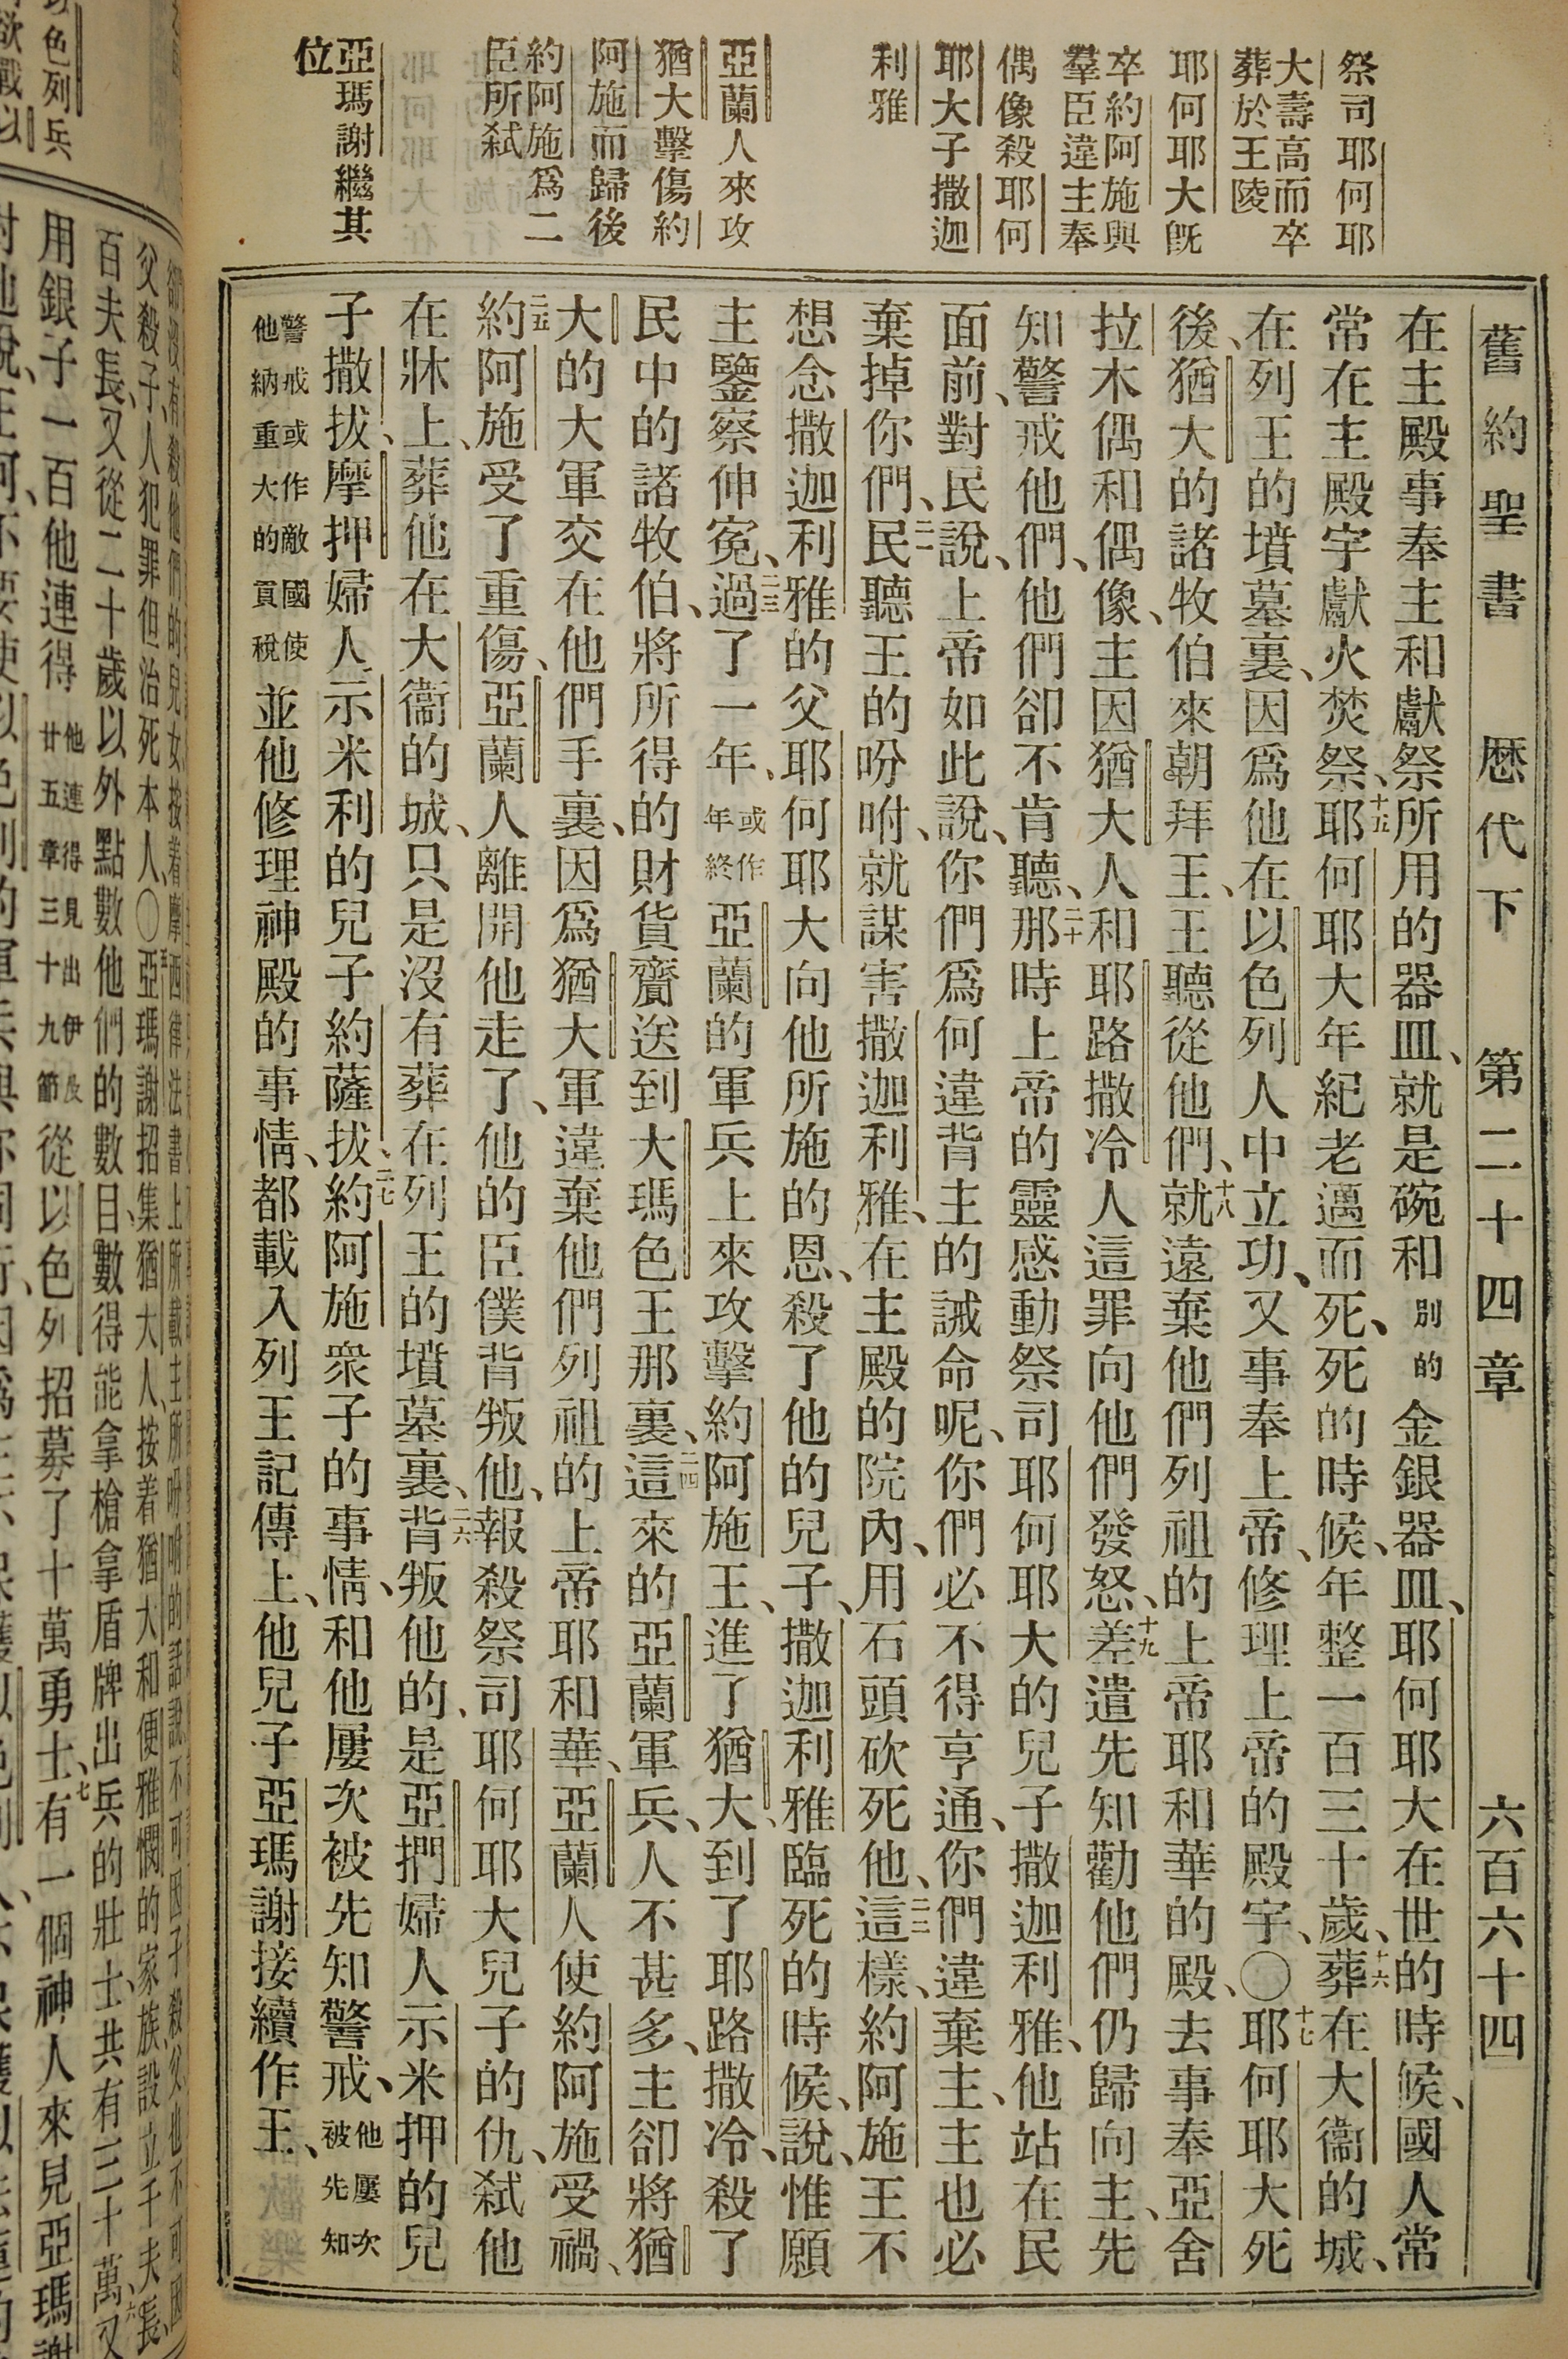 舊約聖書 歷代下 第二十四章 六百六十四
祭司耶何耶
大壽高而卒
葬於王陵
耶何耶大旣
卒約阿施與
羣臣違主奉
偶像殺耶何
耶大子撒迦
利雅
亞蘭人來攻
猶大擊傷約
阿施而歸後
約阿施爲二
臣所弒
亞瑪謝繼其
位
在主殿事奉主和獻祭所用的器皿、就是碗和別的金銀器皿、耶何耶大在世的時候、國人常
常在主殿宇獻火焚祭、十五耶何耶大年紀老邁而死、死的時候、年整一百三十歲、十六葬在大衞的城、
在列王的墳墓裏、因爲他在以色列人中立功、又事奉上帝、修理上帝的殿宇、〇十七耶何耶大死
後、猶大的諸牧伯來朝拜王、王聽從他們、十八就遠棄他們列祖的上帝耶和華的殿、去事奉亞舍
拉木偶和偶像、主因猶大人和耶路撒冷人這罪向他們發怒、十九差遣先知勸他們仍歸向主、先
知警戒他們、他們卻不肯聽、二十那時上帝的靈感動祭司耶何耶大的兒子撒迦利雅、他站在民
面前、對民說、上帝如此說、你們爲何違背主的誡命呢、你們必不得亨通、你們違棄主、主也必
棄掉你們、二一民聽王的吩咐、就謀害撒迦利雅、在主殿的院內、用石頭砍死他、二二這樣、約阿施王不
想念撒迦利雅的父耶何耶大向他所施的恩、殺了他的兒子、撒迦利雅臨死的時候、說、惟願
主鑒察伸寃、二三過了一年、或作年終亞蘭的軍兵上來攻擊約阿施王、進了猶大、到了耶路撒冷、殺了
民中的諸牧伯、將所得的財貨齎送到大瑪色王那裏、二四這來的亞蘭軍兵、人不甚多、主卻將猶
大的大軍交在他們手裏、因爲猶大軍違棄他們列祖的上帝耶和華、亞蘭人使約阿施受禍、
二五約阿施受了重傷、亞蘭人離開他走了、他的臣僕背叛他、報殺祭司耶何耶大兒子的仇、弒他
在牀上、葬他在大衞的城、只是沒有葬在列王的墳墓裏、二六背叛他的、是亞捫婦人示米押的兒
子撒拔、摩押婦人示米利的兒子約薩拔、二七約阿施衆子的事情、和他屢次被先知警戒、他屢次被先知
警戒或作敵國使他納重大的貢稅並他修理神殿的事情、都載入列王記傳上、他兒子亞瑪謝接續作王、
父殺子、人犯罪但治死本人、〇亞瑪謝招集猶大人、按着猶大和便雅憫的家族設立千夫長、
百夫長、又從二十歲以外點數他們的數目、數得能拿槍拿盾牌出兵的壯士、共有三十萬、六又
用銀子一百他連得他連得見出伊及廿五章三十九節從以色列招募了十萬勇士、七有一個神人來見亞瑪謝